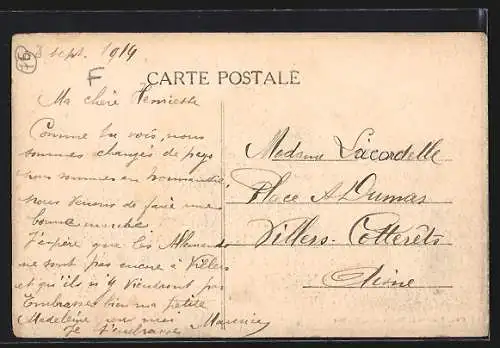 8 sept. 1914
F
CARTE POSTALE
Ma chère Henriette
Comme tu vois, nous
sommes changés de pays
nous sommes en Normandie,
nous venons de faire une
bonne marche.
J'espère que les Allemands
ne sont pas encore à Villers
et qu'ils n'y viendront pas
Embrasse bien ma petite
Madeleine pour moi
Je t'embrasse Maurice
Madame Lacordelle
Place A Dumas
Villers-Cotterêts
Aisne